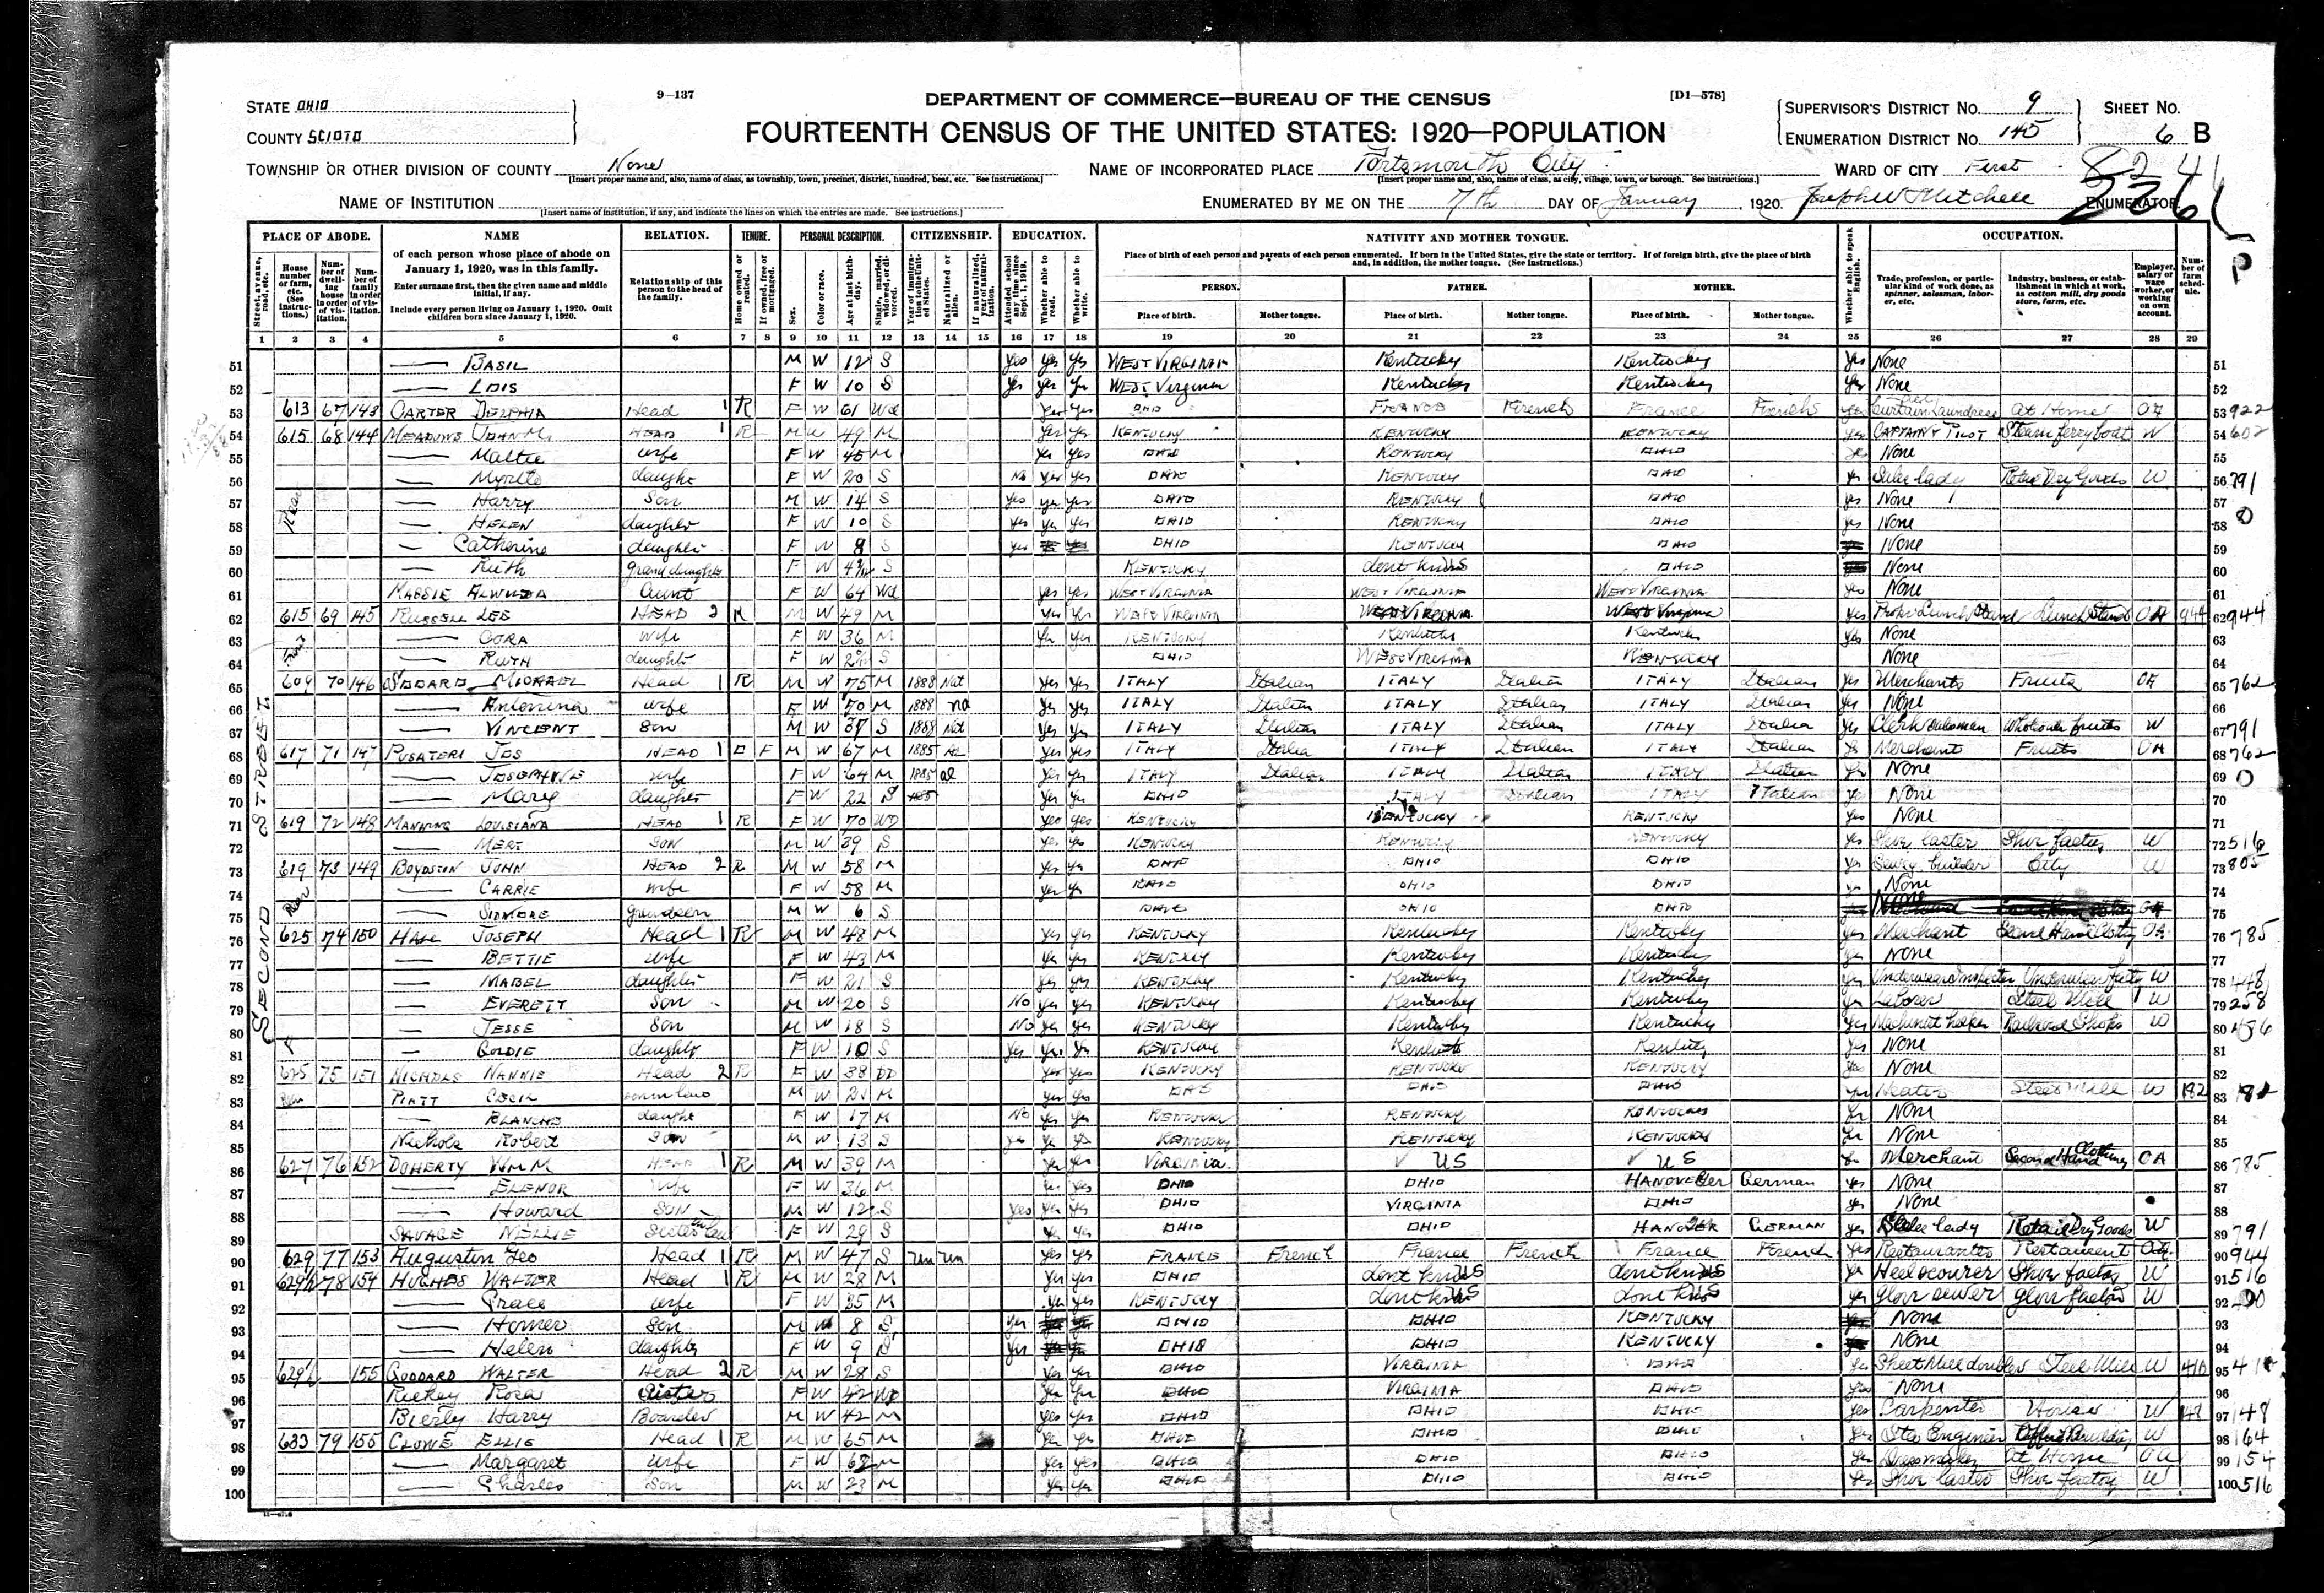 9—137
DEPARTMENT OF COMMERCE—BUREAU OF THE CENSUS
[D1—578]
STATE OHIO
COUNTY SCIOTO
FOURTEENTH CENSUS OF THE UNITED STATES: 1920—POPULATION
SUPERVISOR'S DISTRICT NO. 9
ENUMERATION DISTRICT NO. 145
SHEET NO. 6 B
TOWNSHIP OR OTHER DIVISION OF COUNTY None
[Insert proper name and, also, name of class, as township, town, precinct, district, hundred, beat, etc. See instructions.]
NAME OF INCORPORATED PLACE Portsmouth City
[Insert proper name and, also, name of class, as city, village, town, or borough. See instructions.]
WARD OF CITY First
NAME OF INSTITUTION
[Insert name of institution, if any, and indicate the lines on which the entries are made. See instructions.]
ENUMERATED BY ME ON THE 7th DAY OF January, 1920. Joseph W Mitchell ENUMERATOR.
PLACE OF ABODE. NAME RELATION. TENURE. PERSONAL DESCRIPTION. CITIZENSHIP. EDUCATION. NATIVITY AND MOTHER TONGUE. OCCUPATION.
of each person whose place of abode on January 1, 1920, was in this family.
Enter surname first, then the given name and middle initial, if any.
Include every person living on January 1, 1920. Omit children born since January 1, 1920.
Relationship of this person to the head of the family.
Place of birth of each person and parents of each person enumerated. If born in the United States, give the state or territory. If of foreign birth, give the place of birth and, in addition, the mother tongue. (See instructions.)
PERSON. FATHER. MOTHER.
Place of birth. Mother tongue. Place of birth. Mother tongue. Place of birth. Mother tongue.
Whether able to speak English.
Trade, profession, or particular kind of work done, as spinner, salesman, laborer, etc.
Industry, business, or establishment in which at work, as cotton mill, dry goods store, farm, etc.
Employer, salary or wage worker, or working on own account.
Number of farm schedule.
1 2 3 4 5 6 7 8 9 10 11 12 13 14 15 16 17 18 19 20 21 22 23 24 25 26 27 28 29
SECOND STREET
51 — BASIL M W 12 S Yes Yes Yes WEST VIRGINIA Kentucky Kentucky Yes None 51
52 — LOIS F W 10 S Yes Yes Yes WEST Virginia Kentucky Kentucky Yes None 52
53 613 67 143 CARTER DELPHIA Head 1 R F W 61 Wd Yes Yes OHIO FRANCE French France French Yes Curtain Laundress At Home OA 53 922
54 615 68 144 MEADOWS JOHN M. HEAD 1 R M W 49 M Yes Yes KENTUCKY KENTUCKY KENTUCKY Yes CAPTAIN & PILOT Steam ferry boat W 54 602
55 — wife F W 45 M Yes Yes OHIO KENTUCKY OHIO None 55
56 — F W 20 S No Yes Yes OHIO KENTUCKY OHIO Yes Sales lady Retail Dry Goods W 56 791
57 — Harry Son M W 14 S Yes Yes Yes OHIO KENTUCKY OHIO Yes None 57
58 — HELEN daughter F W 10 S Yes Yes Yes OHIO KENTUCKY OHIO Yes None 58
59 — Catherine daughter F W 8 S Yes OHIO KENTUCKY OHIO None 59
60 — Ruth grand daughter F W S KENTUCKY dont know US OHIO None 60
61 Aunt F W 64 Wd Yes Yes WEST VIRGINIA WEST VIRGINIA WEST VIRGINIA Yes None 61
62 615 69 145 RUSSELL LEE HEAD 2 R M W 49 M Yes Yes WEST VIRGINIA WEST VIRGINIA West Virginia Yes Lunch Stand Lunch Stand OA 944 62 944
63 — CORA wife F W 36 M Yes Yes KENTUCKY Kentucky Kentucky Yes None 63
64 — RUTH daughter F W S OHIO WEST VIRGINIA KENTUCKY None 64
65 609 70 146 MICHAEL Head 1 R M W 75 M 1888 Nat Yes Yes ITALY Italian ITALY Italian ITALY Italian Yes Merchant Fruits OA 65 762
66 — Antonina wife F W 70 M 1888 na Yes Yes ITALY Italian ITALY Italian ITALY Italian Yes None 66
67 — VINCENT Son M W 37 S 1888 Nat Yes Yes ITALY Italian ITALY Italian ITALY Italian Yes Clerk Salesman Wholesale fruits W 67 791
68 617 71 147 PUSATERI JOS HEAD 1 O F M W 67 M 1885 Yes Yes ITALY Italian ITALY Italian ITALY Italian Yes Merchant Fruits OA 68 762
69 — JOSEPHINE wife F W 64 M 1885 al Yes Yes ITALY Italian ITALY Italian ITALY Italian Yes None 69
70 — Mary daughter F W 22 S Yes Yes OHIO ITALY Italian ITALY Italian Yes None 70
71 619 72 148 MANNING LOUISIANA HEAD 1 R F W 70 WD Yes Yes KENTUCKY KENTUCKY KENTUCKY Yes None 71
72 — MERT SON M W 39 S Yes Yes KENTUCKY KENTUCKY KENTUCKY Yes Shoe laster Shoe factory W 72 516
73 619 73 149 BOYDSTON JOHN HEAD 2 R M W 58 M Yes Yes OHIO OHIO OHIO Yes Sewer builder City W 73 805
74 — CARRIE wife F W 58 M Yes Yes OHIO OHIO OHIO Yes None 74
75 Rear — grandson M W 6 S OHIO OHIO OHIO None 75
76 625 74 150 HALL JOSEPH Head 1 R M W 48 M Yes Yes KENTUCKY Kentucky Kentucky Yes Merchant Second Hand Clothing OA 76 785
77 — BETTIE wife F W 43 M Yes Yes KENTUCKY Kentucky Kentucky Yes None 77
78 — MABEL daughter F W 21 S Yes Yes KENTUCKY Kentucky Kentucky Yes Underwear Inspector Underwear facty W 78 448
79 — EVERETT Son M W 20 S No Yes Yes KENTUCKY Kentucky Kentucky Yes Laborer Steel Mill W 79 258
80 — JESSE Son M W 18 S No Yes Yes KENTUCKY Kentucky Kentucky Yes Machinist helper Railroad Shops W 80 486
81 — GOLDIE daughter F W 10 S Yes Yes Yes KENTUCKY Kentucky Kentucky Yes None 81
82 625 75 151 NICHOLS NANNIE Head 2 R F W 38 Yes Yes KENTUCKY KENTUCKY KENTUCKY Yes None 82
83 PIATT CECIL son in law M W 21 M Yes Yes OHIO OHIO OHIO Yes Heater Steel Mill W 182 83 182
84 — BLANCHE daught F W 17 M No Yes Yes KENTUCKY KENTUCKY KENTUCKY Yes None 84
85 Nichols Robert Son M W 13 S Yes Yes Yes KENTUCKY KENTUCKY KENTUCKY Yes None 85
86 627 76 152 DOHERTY WM M HEAD 1 R M W 39 M Yes Yes VIRGINIA US US Yes Merchant Second Hand Clothing OA 86 785
87 — ELENOR wife F W 36 M Yes Yes OHIO OHIO HANOVER Ger German Yes None 87
88 — Howard SON M W 12 S Yes Yes Yes OHIO VIRGINIA OHIO Yes None 88
89 SAVAGE NELLIE Sister in law F W 29 S Yes Yes OHIO OHIO HANOVER GERMAN Yes Sales lady Retail Dry Goods W 89 791
90 629 77 153 Augustin Geo Head 1 R M W 47 S Un Un Yes Yes FRANCE French France French France French Yes Restaurant OA 90 944
91 629½ 78 154 HUGHES WALTER Head 1 R M W 28 M Yes Yes OHIO dont know US dont know US Yes Heel scourer Shoe factory W 91 516
92 — Grace wife F W 25 M Yes Yes KENTUCKY dont know US dont know US Yes glove sewer glove factory W 92
93 — Homer Son M W 8 S Yes OHIO OHIO KENTUCKY None 93
94 — Helen daughter F W 9 S Yes OHIO OHIO KENTUCKY None 94
95 629½ 155 GODDARD WALTER Head 2 R M W 28 S Yes Yes OHIO VIRGINIA OHIO Yes Sheet Mill doubler Steel Mill W 410 95
96 Rickey Rosa Sister F W 42 WD Yes Yes OHIO VIRGINIA OHIO Yes None 96
97 Bierly Harry Boarder M W 42 M Yes Yes OHIO OHIO OHIO Yes Carpenter House W 148 97 148
98 633 79 155 CLOWE ELLIE Head 1 R M W 65 M Yes Yes OHIO OHIO OHIO Yes Engineer W 98 164
99 — Margaret wife F W 62 M Yes Yes OHIO OHIO OHIO Yes Dressmaker At Home OA 99 154
100 — Charles Son M W 23 M Yes Yes OHIO OHIO OHIO Yes Shoe laster Shoe factory W 100 516